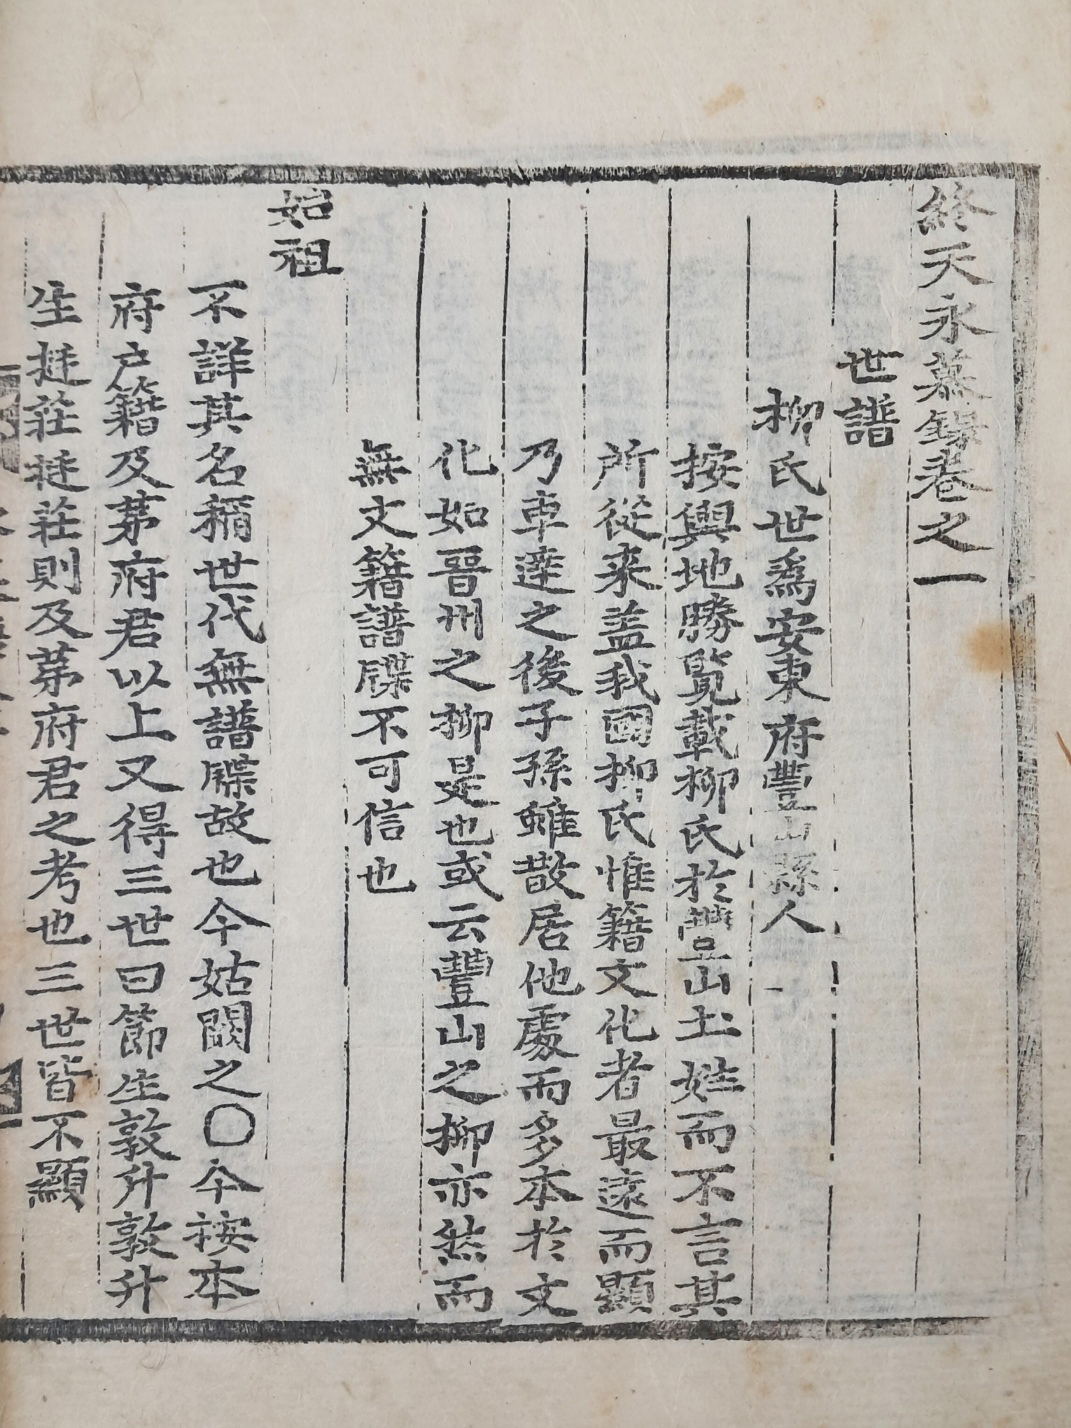 終天永慕錄卷之一
世譜
柳氏世爲安東府豐山縣人
按輿地勝覽載柳氏於豐山土姓而不言其
所從來盖我國柳氏惟籍文化者最遠而顯
乃車達之後子孫雖散居他處而多本於文
化如晉州之柳是也或云豐山之柳亦然而
無文籍譜牒不可信也
始祖
不詳其名稱世代無譜牒故也今姑闕之〇今按本
府户籍及第府君以上又得三世曰節生敦升敦升
生挺莊挺莊則及第府君之考也三世皆不顯